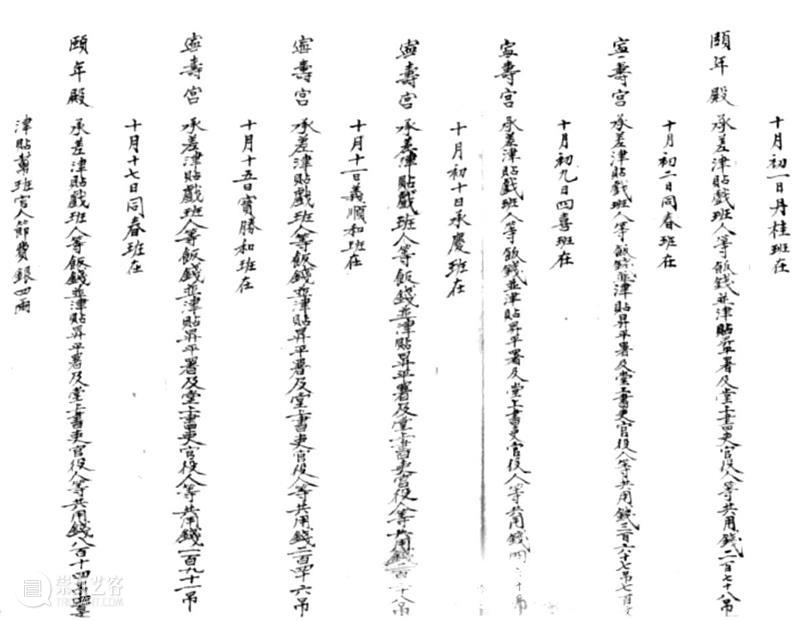 十月初一日丹桂班在
頤年殿承差津貼戲班人等飯錢並津貼昇平署及堂上書吏官役人等共用錢二百七十八吊
十月初二日同春班在
寧壽宮承差津貼戲班人等飯錢並津貼昇平署及堂上書吏官役人等共用錢三百六十七吊七百文
十月初九日四喜班在
寧壽宮承差津貼戲班人等飯錢並津貼昇平署及堂上書吏官役人等共用錢四十吊
十月初十日承慶班在
寧壽宮承差津貼戲班人等飯錢並津貼昇平署及堂上書吏官役人等共用錢二百八吊
十月十一日義順和班在
寧壽宮承差津貼戲班人等飯錢並津貼昇平署及堂上書吏官役人等共用錢二百四十六吊
十月十五日寶勝和班在
寧壽宮承差津貼戲班人等飯錢並津貼昇平署及堂上書吏官役人等共用錢一百九十一吊
十月十七日同春班在
頤年殿承差津貼戲班人等飯錢並津貼昇平署及堂上書吏官役人等共用錢八百十四吊
津貼班官人節費銀四兩
崇真艺客